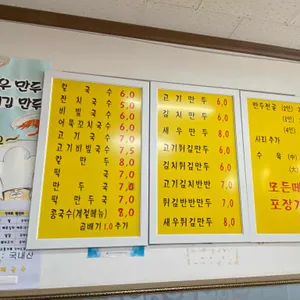 우 만두
김 만두
칼국수 6,0
잔치국수 5,0
비빔국수 6,0
어묵꼬치국수 6,0
고기국수 7,0
고기비빔국수 7,5
칼만두 8,0
떡국 7,0
만두국 7,0
떡만두국 7,0
콩국수(계절메뉴) 8,0
곱배기 1,0 추가
고기만두 6,0
김치만두 6,0
새우만두 8,0
고기튀김만두 6,0
김치튀김만두 6,0
고기김치반반 6,0
튀김반반만두 6,0
새우튀김만두 8,0
만두전골 (2인)
(3인)
(4인)
사리 추가
수육 (中)
(大)
모든메
포장가
국내산